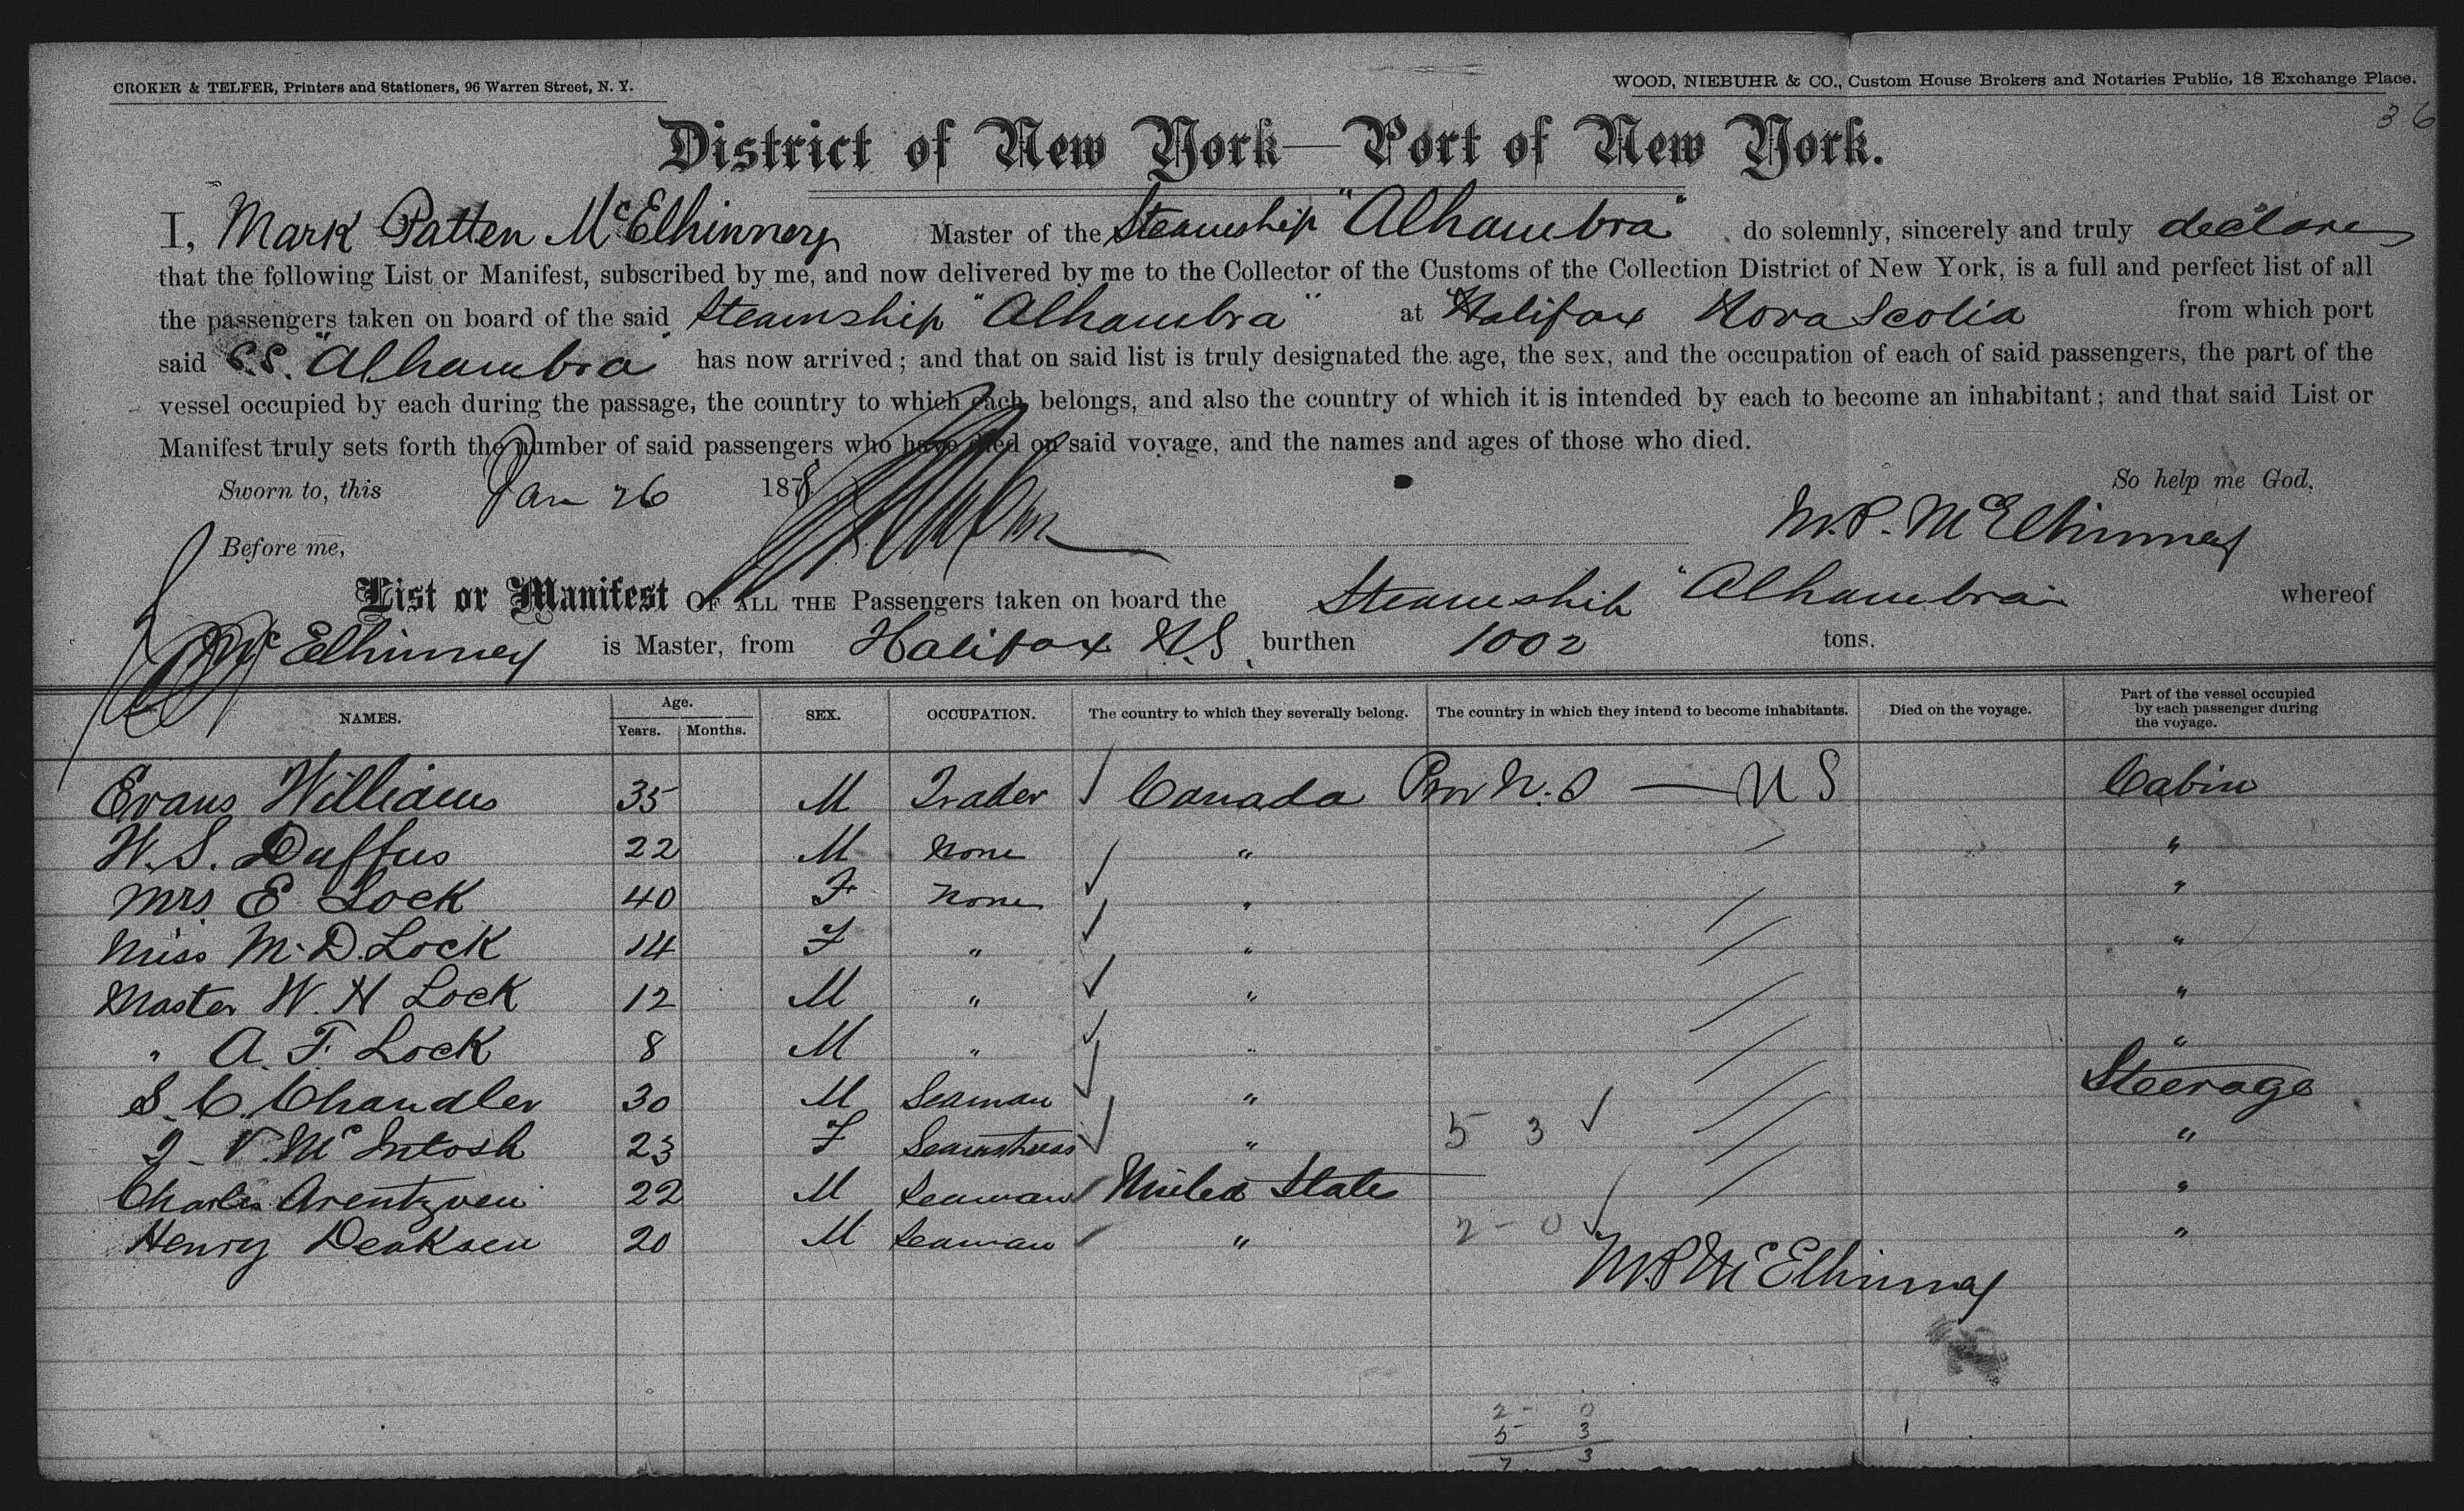 CROKER & TELFER, Printers and Stationers, 96 Warren Street, N. Y.
WOOD, NIEBUHR & CO., Custom House Brokers and Notaries Public, 18 Exchange Place.
36
District of New York—Port of New York.
I, Mark Patten McElhinney Master of the Steamship "Alhambra" do solemnly, sincerely and truly declare
that the following List or Manifest, subscribed by me, and now delivered by me to the Collector of the Customs of the Collection District of New York, is a full and perfect list of all
the passengers taken on board of the said Steamship "Alhambra" at Halifax Nova Scotia from which port
said S.S. "Alhambra" has now arrived; and that on said list is truly designated the age, the sex, and the occupation of each of said passengers, the part of the
vessel occupied by each during the passage, the country to which each belongs, and also the country of which it is intended by each to become an inhabitant; and that said List or
Manifest truly sets forth the number of said passengers who have died on said voyage, and the names and ages of those who died.
Sworn to, this Jan 26 1878 So help me God.
Before me, M.P. McElhinney
List or Manifest OF ALL THE Passengers taken on board the Steamship "Alhambra" whereof
McElhinney is Master, from Halifax N.S. burthen 1002 tons.
NAMES. Age. Years. Months. SEX. OCCUPATION. The country to which they severally belong. The country in which they intend to become inhabitants. Died on the voyage. Part of the vessel occupied by each passenger during the voyage.
Evans Williams 35 M Trader Canada Prov N.S — U S Cabin
W. S. Duffus 22 M None " "
Mrs E Lock 40 F None " "
Miss M. D. Lock 14 F " " "
Master W. H Lock 12 M " " "
" A. F. Lock 8 M " " "
S. C. Chandler 30 M Seaman " Steerage
V. McIntosh 23 F Seamstress " 5 3 "
Charles Arentzven 22 M Seaman United State "
Henry Deaksen 20 M Seaman " 2 - 0 "
M.P. McElhinney
2 - 0
5 3
7 3